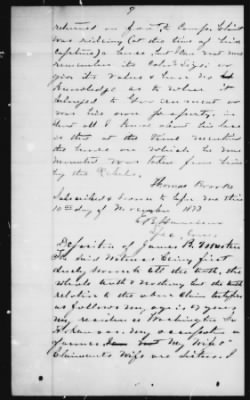 9
returned on foot to Camp. Claimt
was riding (at the time of his
capture) a horse, but I do not
remember its Color & Size or
give its Value & have no
knowledge as to whether it
belonged to Government or
was his own property.
all I know about his loss
is that at the time mentioned
the horse on which he was
mounted was taken from him
by the Rebels.
Thomas Brooks
Subscribed & sworn to before me this
10th day of November 1873
Deposition of James B.
The said Witness being first
duly sworn to tell the truth, the
whole truth & nothing but the truth
relative to the above Claim testifies
as follows. my age is years
my residence Washington Co
Arkansas. my occupation a
farmer. My Wife &
Claimants Wife are sisters. I